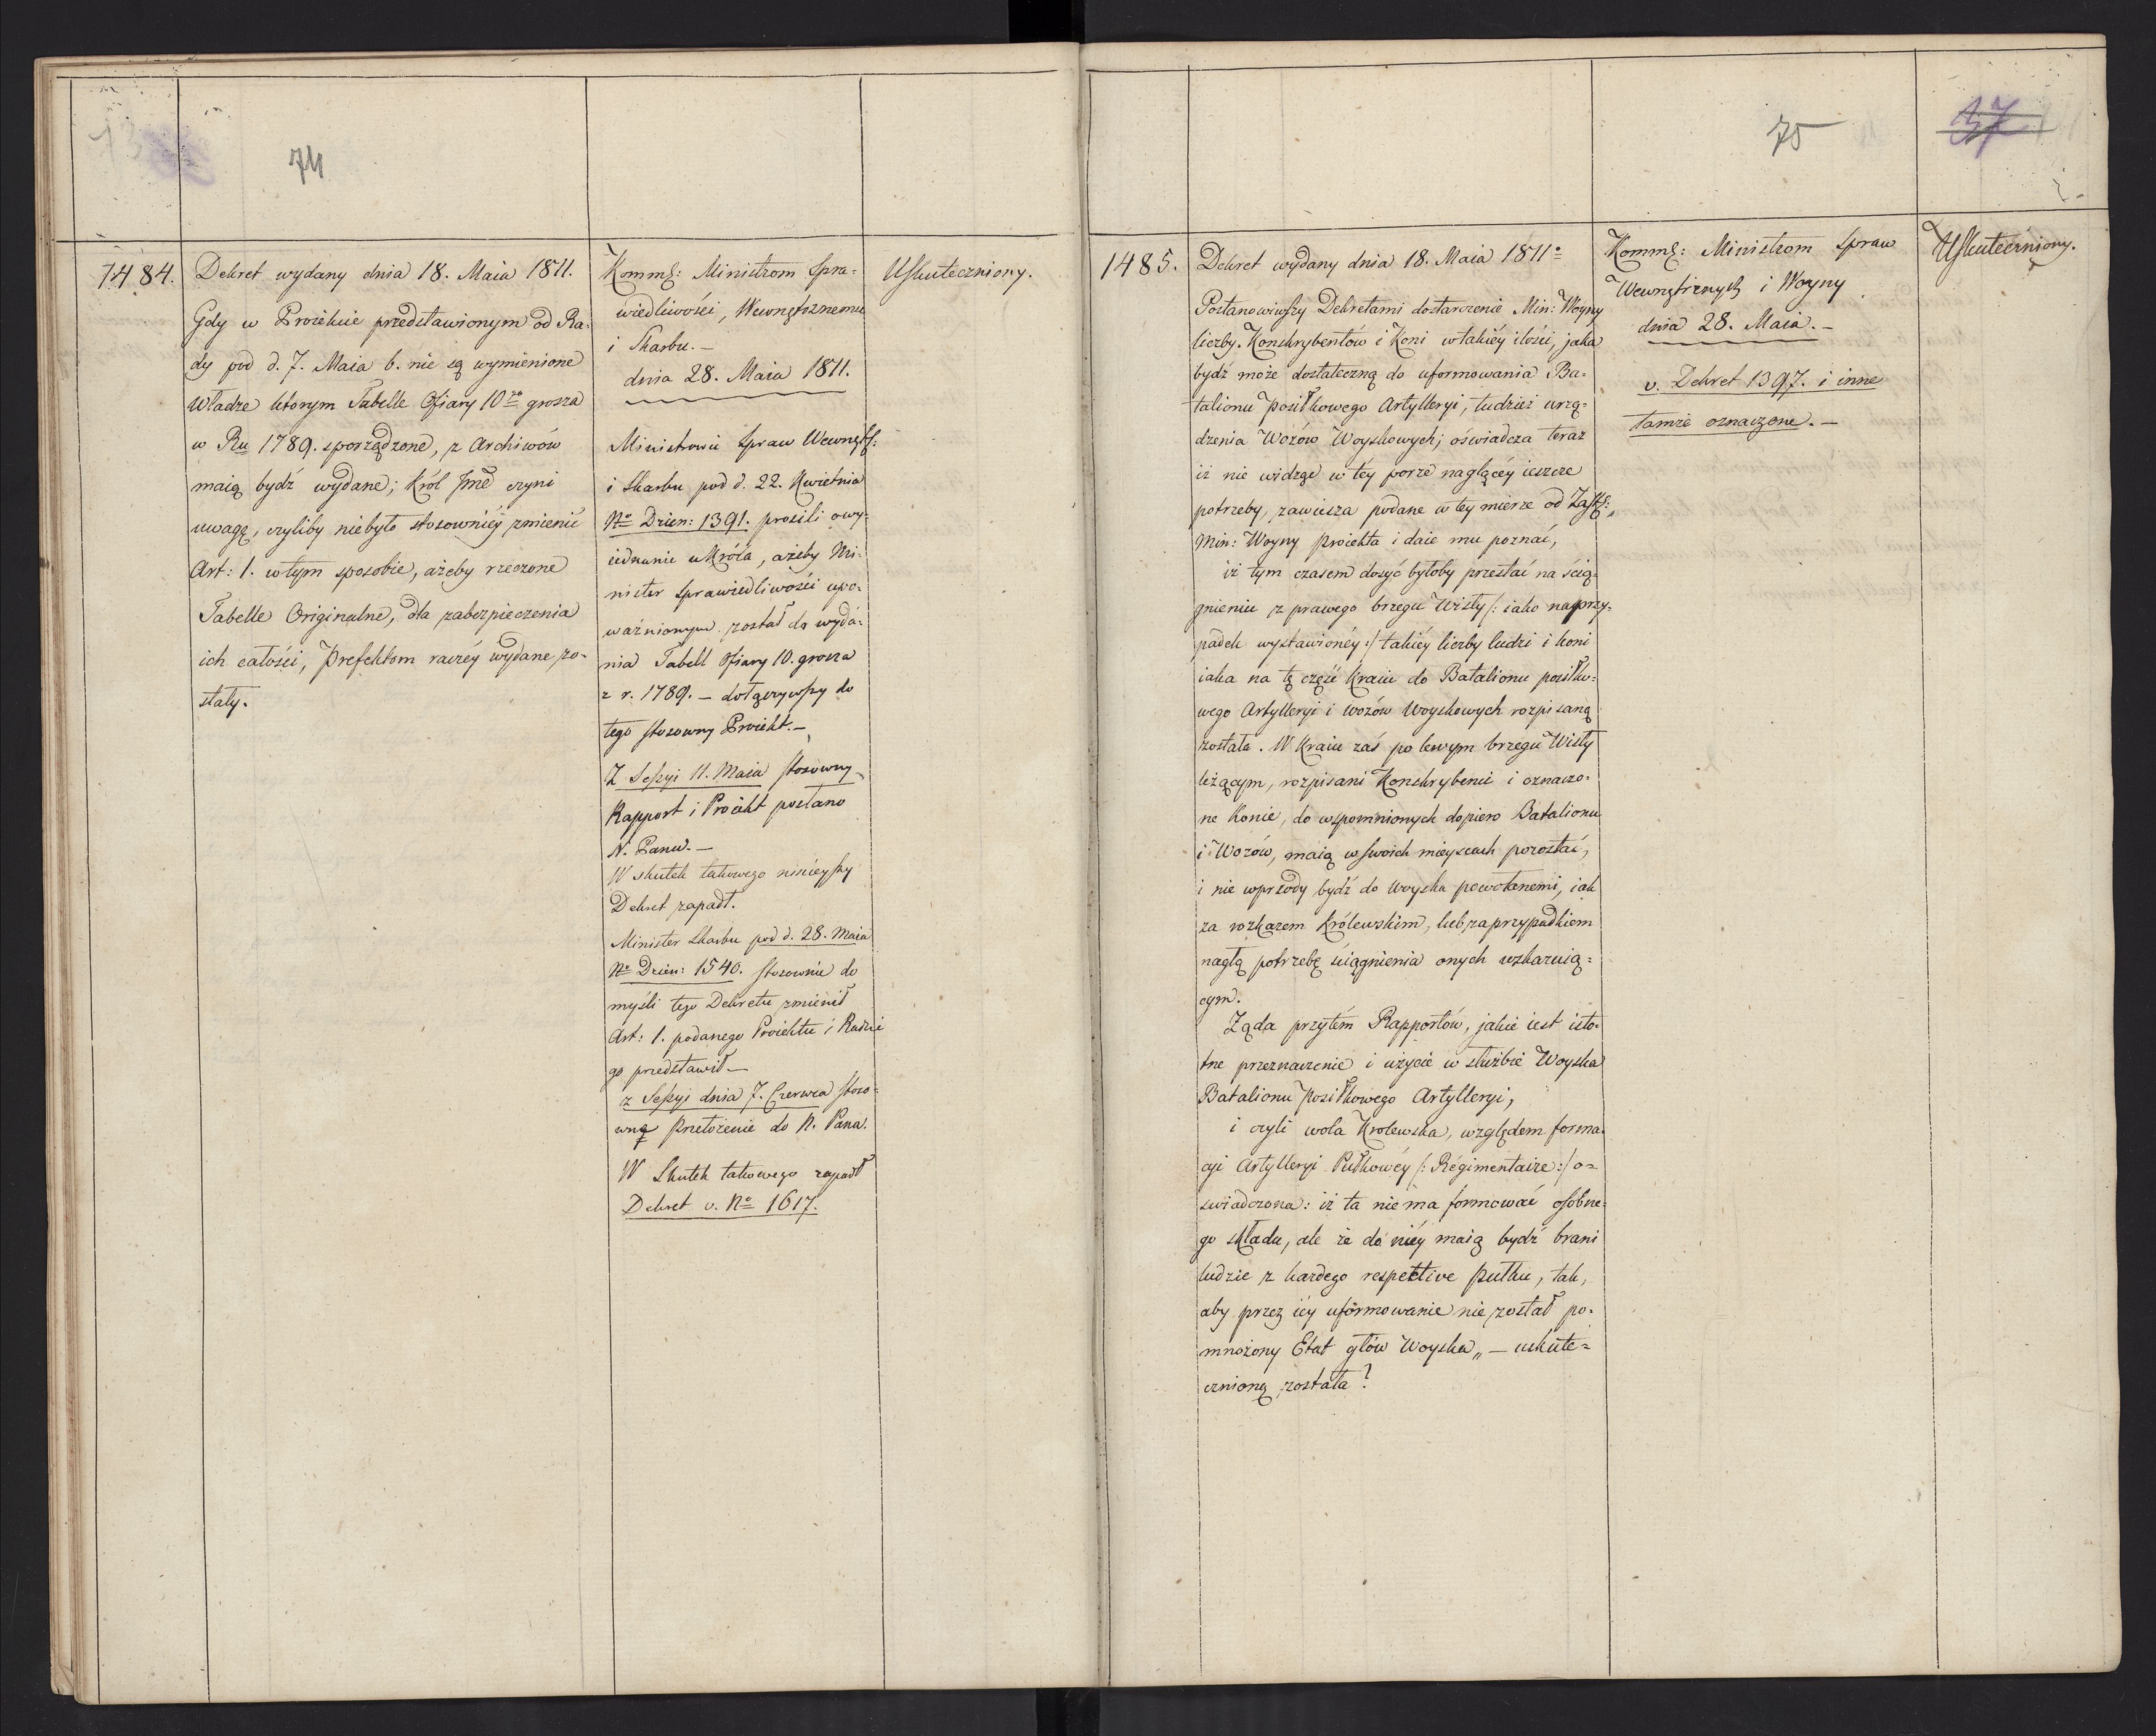 74
1484.
Dekret wydany dnia 18. Maia 1811.
Gdy w Proiekcie przedstawionym od Ra-
dy pod d. 7. Maia b. nie są wymienione
Władze którym Tabelle Ofiary 10go grosza
w Ru 1789. sporządzone, z Archiwów
maią bydź wydane; Król Jmć czyni
uwagę, czyliby niebyło stosowniéy zmienić
Art: 1. w tym sposobie, ażeby rzeczone
Tabelle Originalne, dla zabezpieczenia
ich całości, Prefektom raczéy wydane zo-
stały.
Kommk: Ministrom Spra=
wiedliwości, Wewnętrznemu
i Skarbu. —
dnia 28. Maia 1811.
Ministrowie Spraw Wewnętrz:
i Skarbu pod d. 22. Kwietnia
No Dzien: 1391. prosili o wy-
iednanie u Króla, ażeby Mi-
nister Sprawiedliwości upo-
ważnionym został do wyda-
nia Tabell Ofiary 10. grosza
z r. 1789. — dołączywszy do
tego stosowny Proiekt. —
Z Sessyi 11. Maia stosowny
Rapport i Proiekt posłano
N. Panu. —
W skutek takowego ninieyszy
Dekret zapadł.
Minister Skarbu pod d. 28. Maia
No Dzien: 1540. stosownie do
myśli tego Dekretu zmienił
Art: 1. podanego Proiektu i Radzie
go przedstawił —
z Sessyi dnia 7. Czerwca stoso-
wne Przełożenie do N. Pana.
W Skutek takowego zapadł
Dekret v. No 1617.
Uskuteczniony.
75
37
1485.
Dekret wydany dnia 18. Maia 1811o
Postanowiwszy Dekretami dostarczenie Min: Woyny
liczby Konskrybentów i Koni w takiéy ilości, jaka
bydź może dostateczną do uformowania Ba-
talionu posiłkowego Artylleryi, tudzież urzą-
dzenia Wozów Woyskowych; oświadcza teraz
iż nie widząc w téy porze naglącéy ieszcze
potrzeby, zawiesza podane w tey mierze od Zastę:
Min: Woyny proiekta i daie mu poznać,
iż tym czasem dosyć byłoby przestać na ścią-
gnieniu z prawego brzegu Wisły /: iako na przy-
padek wystawionéy :/ takiéy liczby ludzi i koni
iaka na tę część Kraiu do Batalionu posiłko-
wego Artylleryi i wozów Woyskowych rozpisaną
została. W Kraiu zaś po lewym brzegu Wisły
leżącym, rozpisani Konskrybenci i oznaczo-
ne Konie, do wspomnionych dopiero Batalionu
i Wozów, maią w swoich mieyscach pozostać,
i nie wprzódy bydź do Woyska powołanemi, iak
za rozkazem Królewskim, lub za przypadkiem
nagłą potrzebę ściągnienia onych wskazuią-
cym.
Żąda przytém Rapportów, jakie iest isto-
tne przeznaczenie i użycie w służbie Woyska
Batalionu posiłkowego Artylleryi,
i czyli wola Krolewska, względem forma-
cyi Artylleryi Pułkowéy /: Régimentaire :/ o-
swiadczona: iż ta nie ma formować osobne-
go składu, ale że do niéy maią bydź brani
ludzie z każdego respective pułku, tak,
aby przez iéy uformowanie nie został po-
mnożony Etat głów Woyska „ — uskute-
cznioną została?
Kommk: Ministrom Spraw
Wewnętrznych i Woyny
dnia 28. Maia. —
v. Dekret 1397. i inne
tamże oznaczone. —
Uskuteczniony.